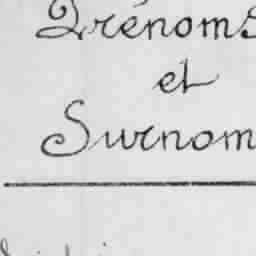 Prénoms
et
Surnom